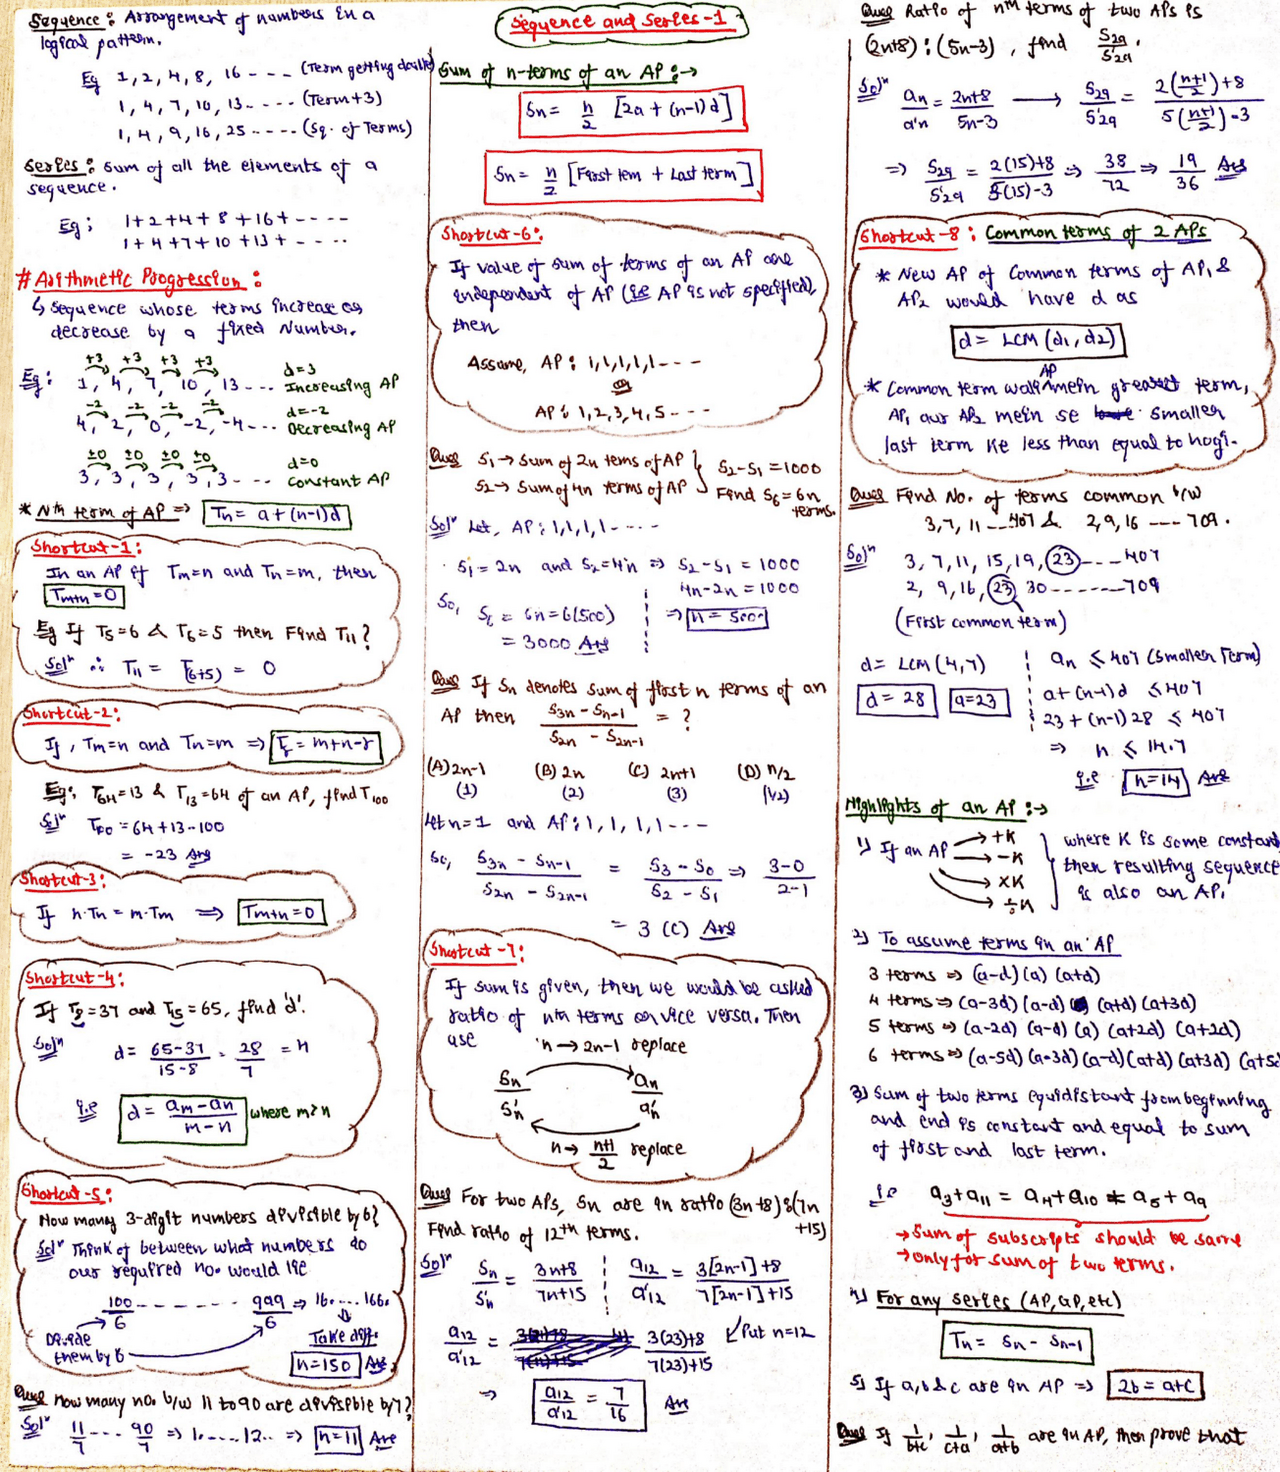 Sequence: Arrangement of numbers in a
logical pattern.
Eg 1, 2, 4, 8, 16 ---- (Term getting double)
1, 4, 7, 10, 13 ----- (Term+3)
1, 4, 9, 16, 25 ----- (Sq. of Terms)
Series: Sum of all the elements of a
sequence.
Eg: 1+2+4+8+16+ ----
1+4+7+10+13+ - - - -
# Arithmetic Progression:
↳ Sequence whose terms increase or
decrease by a fixed Number.
+3 +3 +3 +3
Eg: 1, 4, 7, 10, 13 ... d=3 Increasing AP
-2 -2 -2 -2
4, 2, 0, -2, -4 ... d=-2 Decreasing AP
±0 ±0 ±0 ±0
3, 3, 3, 3, 3 ... d=0 constant AP
* Nth term of AP => Tn = a+(n-1)d
Shortcut-1:
In an AP if Tm=n and Tn=m, then
Tm+n=0
Eg If T5=6 & T6=5 then Find T11?
Soln ∴ T11 = T(6+5) = 0
Shortcut-2:
If, Tm=n and Tn=m => Tr = m+n-r
Eg: T64=13 & T13=64 of an AP, find T100
Soln T100 = 64+13-100
= -23 Ans
Shortcut-3:
If n.Tn = m.Tm => Tm+n=0
Shortcut-4:
If T8=37 and T15=65, find 'd'.
Soln d = 65-37/15-8 = 28/7 = 4
i.e d = am-an/m-n where m>n
Shortcut-5:
How many 3-digit numbers divisible by 6?
Soln Think of between what numbers do
our required no. would lie
100/6 - - - - - - 999/6 => 16. ... 166.
Divide them by 6
Take diff.
n=150 Ans.
Ques How many no. b/w 11 to 90 are divisible by 7?
Soln 11/7 --- 90/7 => 1. .... 12.. => n=11 Ans
Sequence and Series-1
Sum of n-terms of an AP:→
Sn = n/2 [2a+(n-1)d]
Sn = n/2 [First tem + Last term]
Shortcut-6:
If value of sum of terms of an AP are
independent of AP (i.e AP is not specified),
then
Assume, AP: 1,1,1,1,1 - - -
or
AP: 1,2,3,4,5 - - - -
Ques S1→ Sum of 2n tems of AP } S2-S1=1000
S2→ Sum of 4n terms of AP } Find S6=6n terms.
Soln Let, AP: 1,1,1,1 - - - - -
S1=2n and S2=4n => S2-S1=1000
4n-2n=1000
=> n=500
So, S6 = 6n=6(500)
= 3000 Ans
Ques If Sn denotes sum of first n terms of an
AP then S3n-Sn-1/S2n-S2n-1 = ?
(A) 2n-1 (B) 2n (C) 2n+1 (D) n/2
(1) (2) (3) (1/2)
Let n=1 and AP: 1, 1, 1, 1 - - -
So, S3n-Sn-1/S2n-S2n-1 = S3-S0/S2-S1 => 3-0/2-1
= 3 (C) Ans
Shortcut-7:
If sum is given, then we would be asked
ratio of nth terms or vice versa. Then
use n→2n-1 replace
Sn/S'n an/a'n
n→ n+1/2 replace
Ques For two APs, Sn are in ratio (3n+8):(7n
+15)
Find ratio of 12th terms.
Soln Sn/S'n = 3n+8/7n+15 a12/a'12 = 3[2n-1]+8/7[2n-1]+15
a12/a'12 = 3(23)+8/7(23)+15 Put n=12
=> a12/a'12 = 7/16 Ans
Ques Ratio of nth terms of two APs is
(2n+8):(5n-3), find S29/S'29.
Soln an/a'n = 2n+8/5n-3 → S29/S'29 = 2(n+1/2)+8/5(n+1/2)-3
=> S29/S'29 = 2(15)+8/5(15)-3 => 38/72 => 19/36 Ans
Shortcut-8: Common terms of 2 APs
* New AP of Common terms of AP1 &
AP2 would have d as
d = LCM (d1, d2)
* Common term wali AP mein greatest term,
AP1 aur AP2 mein se smaller
last term ke less than equal to hogi.
Ques Find No. of terms common b/w
3,7,11 --- 407 & 2,9,16 --- 709.
Soln 3, 7, 11, 15, 19, 23 --- 407
2, 9, 16, 23, 30 ------ 709
(First common term)
d = LCM(4,7)
d=28 a=23
an ≤ 407 (Smaller Term)
a+(n-1)d ≤ 407
23+(n-1)28 ≤ 407
=> n ≤ 14.7
i.e n=14 Ans
Highlights of an AP:→
1) If an AP → +K → -K → ×K → ÷K } where K is some constant
then resulting sequence
is also an AP.
2) To assume terms in an AP
3 terms => (a-d) (a) (a+d)
4 terms => (a-3d) (a-d) (a+d) (a+3d)
5 terms => (a-2d) (a-d) (a) (a+2d) (a+2d)
6 terms => (a-5d) (a-3d) (a-d) (a+d) (a+3d) (a+5d
3) Sum of two terms equidistant from beginning
and end is constant and equal to sum
of first and last term.
i.e a3+a11 = a4+a10 = a5+a9
→ Sum of subscripts should be same
→ only for sum of two terms.
4) For any series (AP, GP, etc)
Tn = Sn - Sn-1
5) If a, b & c are in AP => 2b = a+c
Ques If 1/b+c, 1/c+a, 1/a+b are in AP, then prove that